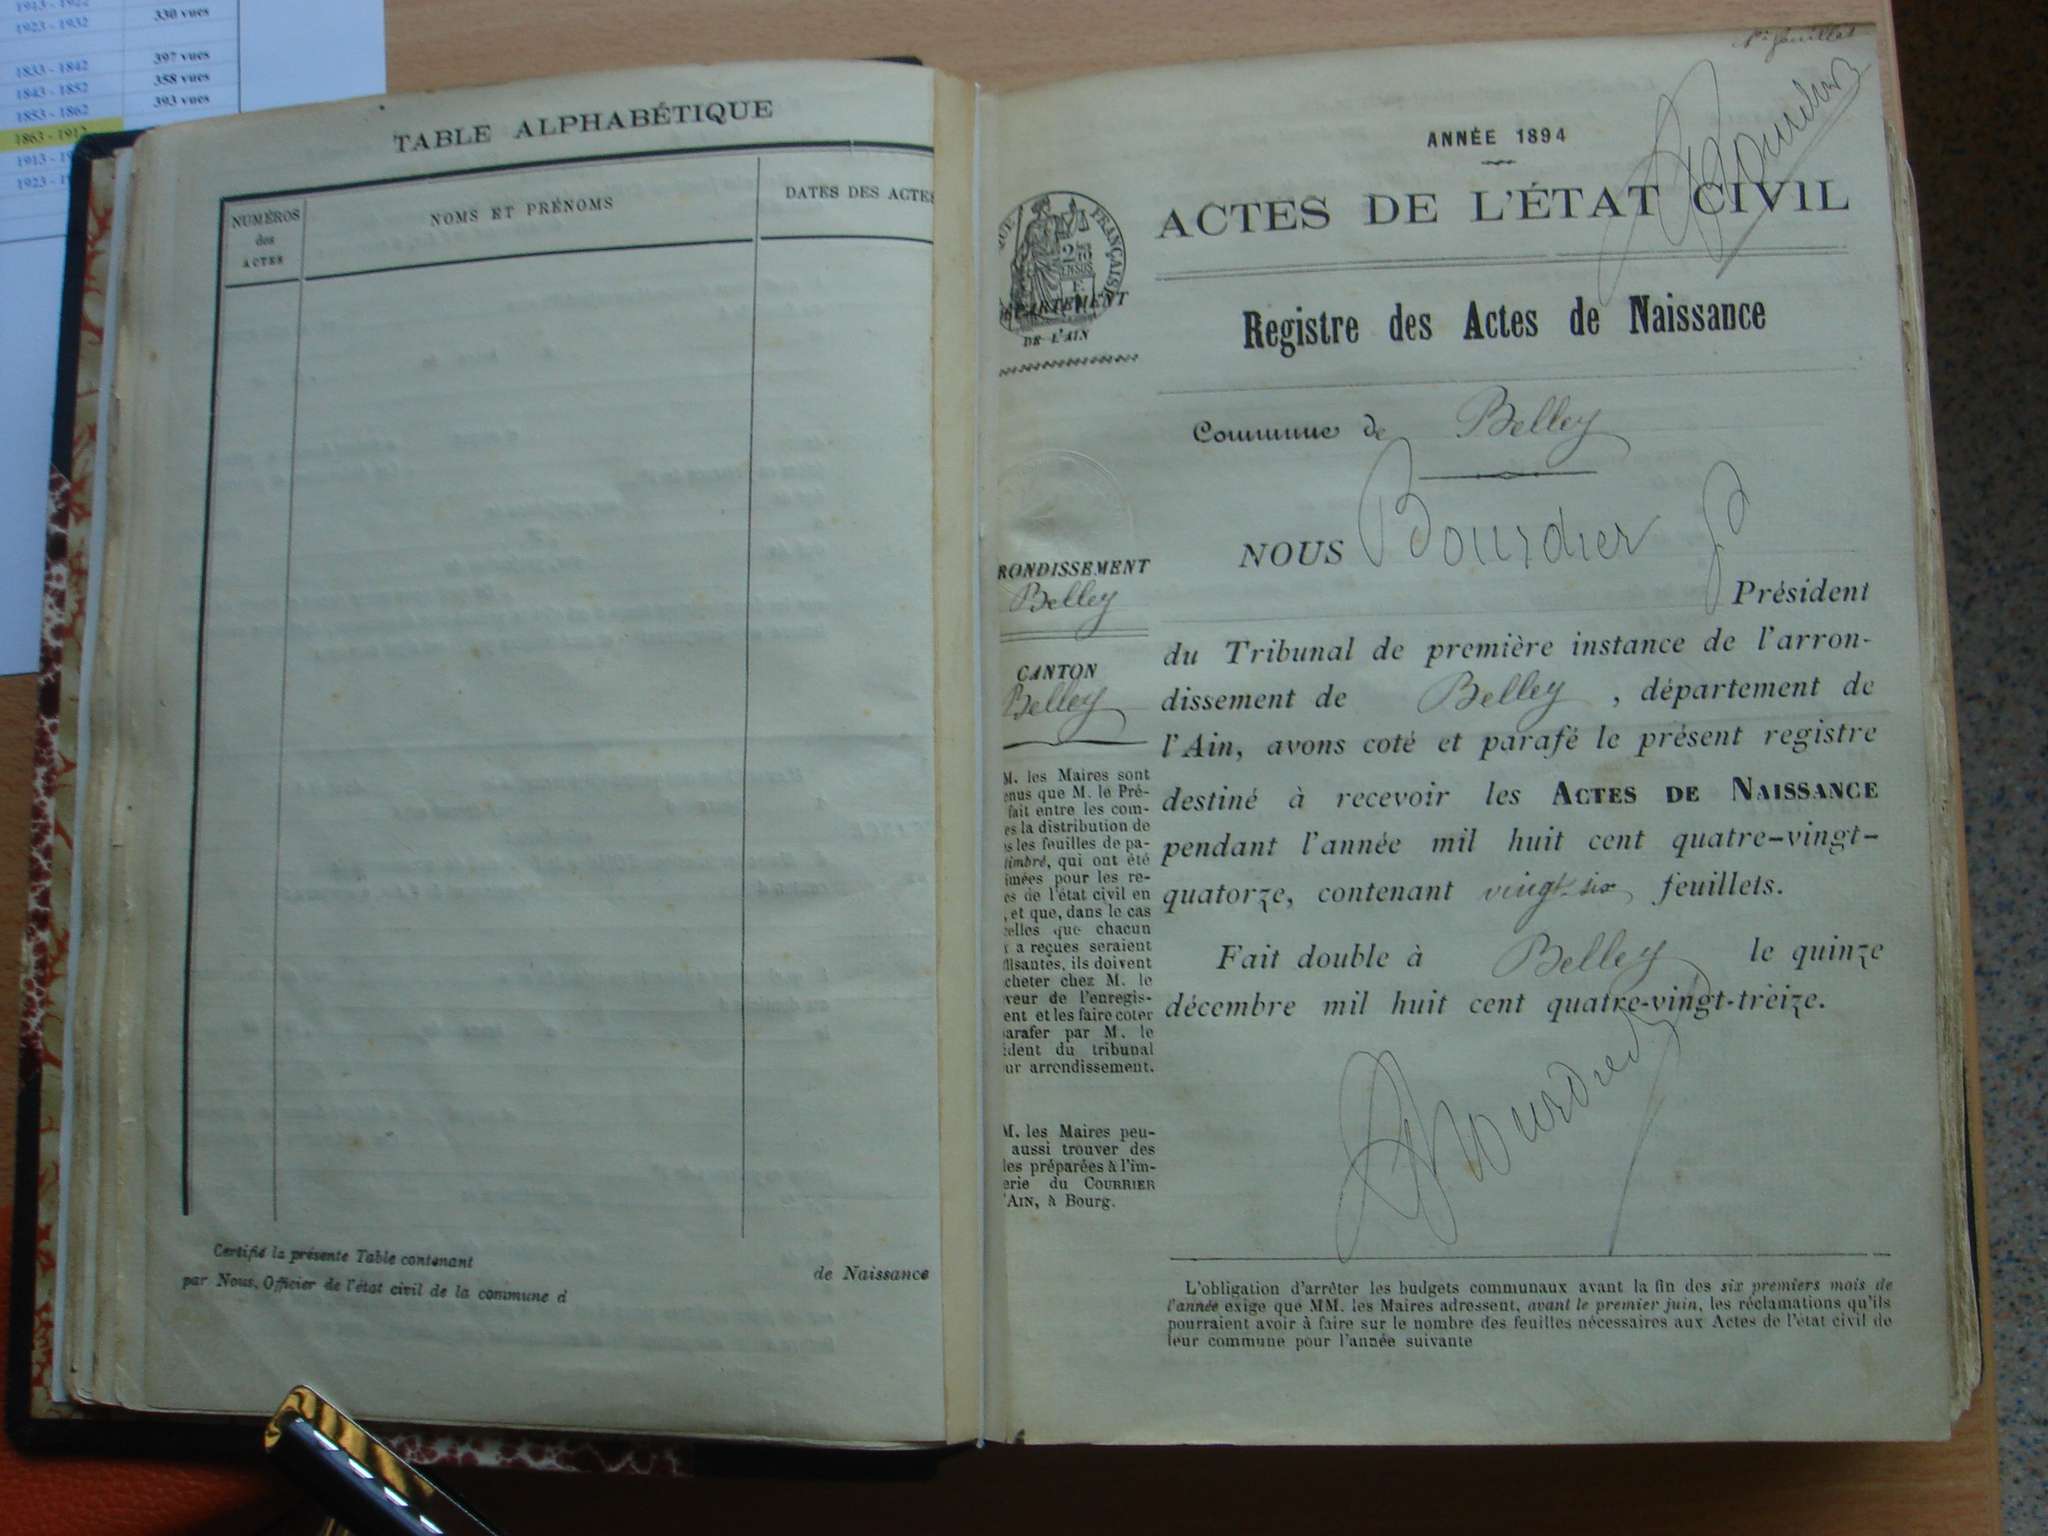 1913 - 1922
1923 - 1932 330 vues
1833 - 1842 397 vues
1843 - 1852 358 vues
1853 - 1862 393 vues
1863 - 1912
1913 - 19
1923 - 1
TABLE ALPHABÉTIQUE
NUMÉROS
des
ACTES
NOMS ET PRÉNOMS
DATES DES ACTES
Certifié la présente Table contenant
de Naissance
par Nous, Officier de l'état civil de la commune d
1er feuillet
ANNÉE 1894
ACTES DE L'ÉTAT CIVIL
FRANÇAISE
DE L'AIN
Registre des Actes de Naissance
Commune de Belley
NOUS Bourdier
Président
du Tribunal de première instance de l'arron-
dissement de Belley, département de
l'Ain, avons coté et parafé le présent registre
destiné à recevoir les ACTES DE NAISSANCE
pendant l'année mil huit cent quatre-vingt-
quatorze, contenant vingt-six feuillets.
Fait double à Belley le quinze
décembre mil huit cent quatre-vingt-treize.
Bourdier
RONDISSEMENT
Belley
CANTON
Belley
M. les Maires sont
enus que M. le Pré-
fait entre les com-
es la distribution de
s les feuilles de pa-
timbré, qui ont été
imées pour les re-
es de l'état civil en
, et que, dans le cas
celles que chacun
x a reçues seraient
ffisantes, ils doivent
cheter chez M. le
veur de l'enregis-
ent et les faire coter
arafer par M. le
ident du tribunal
ur arrondissement.
M. les Maires peu-
aussi trouver des
les préparées à l'im-
erie du COURRIER
'AIN, à Bourg.
L'obligation d'arrêter les budgets communaux avant la fin des six premiers mois de
l'année exige que MM. les Maires adressent, avant le premier juin, les réclamations qu'ils
pourraient avoir à faire sur le nombre des feuilles nécessaires aux Actes de l'état civil de
leur commune pour l'année suivante